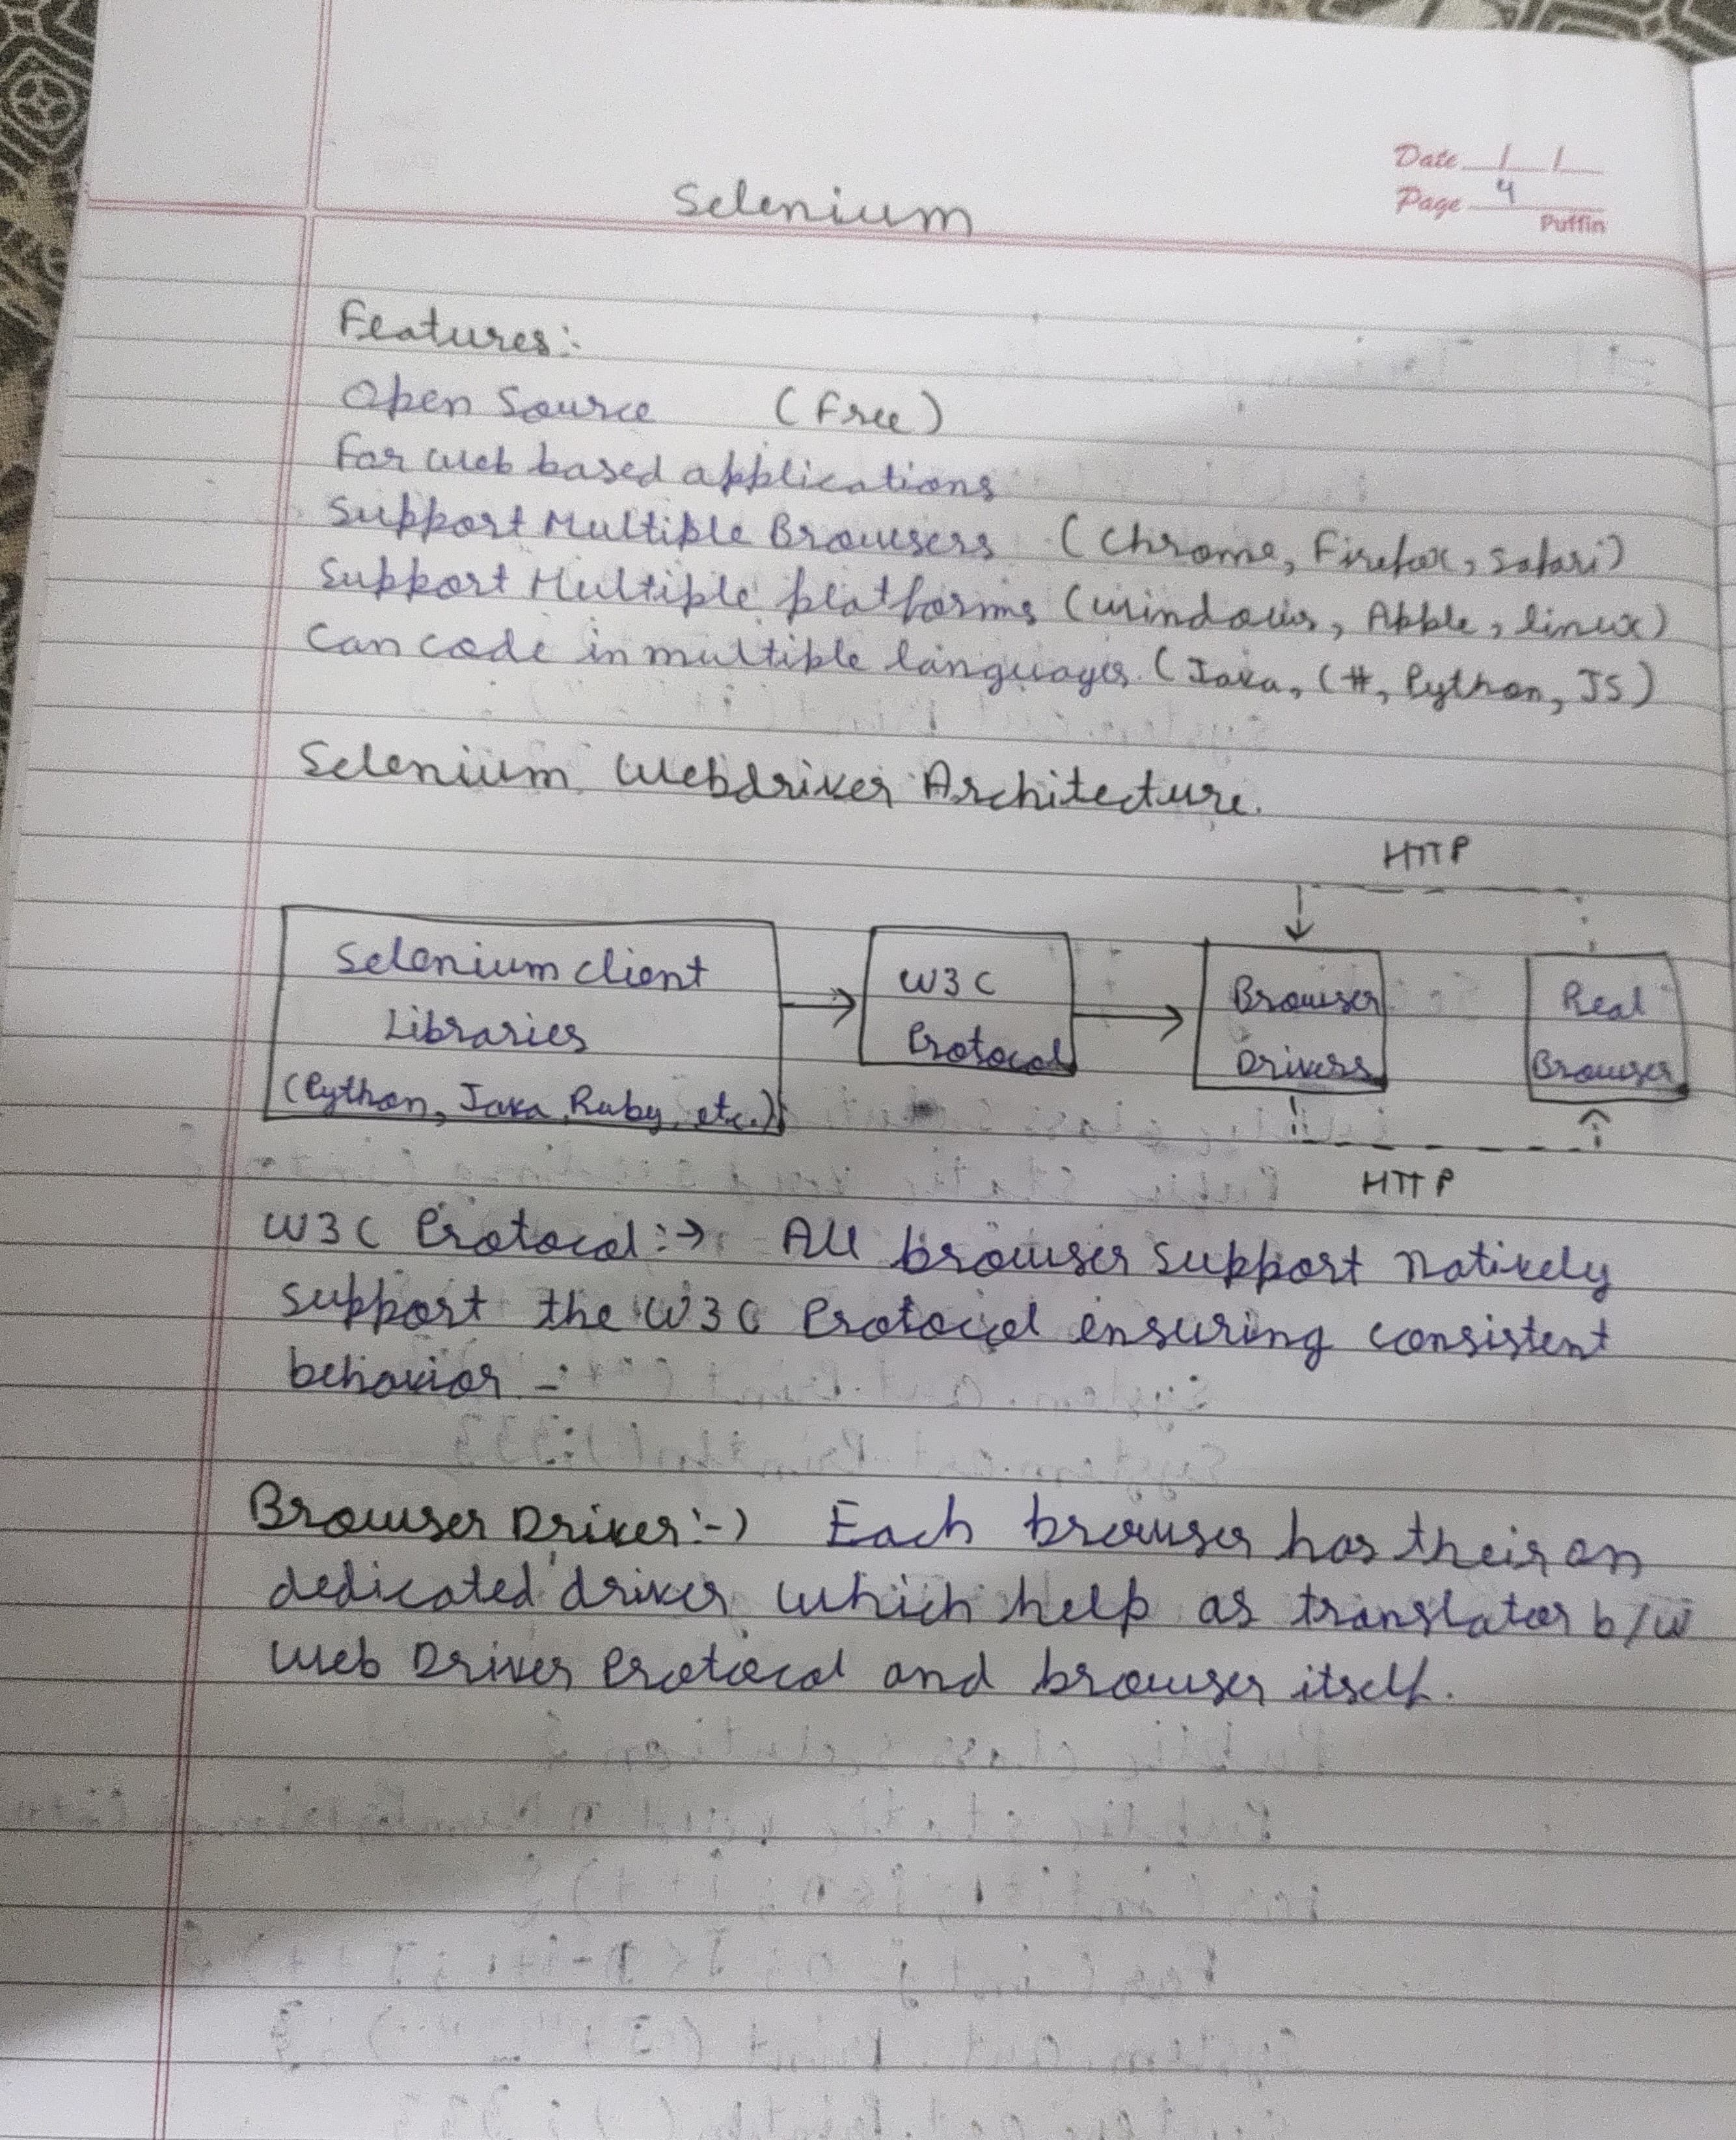 Date / /
Page 4
Puffin
Selenium
Features:-
Open Source (Free)
For web based applications
Support Multiple Browsers (Chrome, Firefox, Safari)
Support Multiple platforms (windows, Apple, linux)
Can code in multiple languages. (Java, C#, Python, JS)
Selenium Webdriver Architecture.
HTTP
Selenium client
Libraries
(Python, Java, Ruby, etc.)
W3C
Protocol
Browser
Drivers
Real
Browser
HTTP
W3C Protocol:→ All browser support natively
support the W3C Protocol ensuring consistent
behavior -:
Browser Driver:-) Each browser has their on
dedicated driver which help as translator b/w
Web Driver Protocol and browser itself.